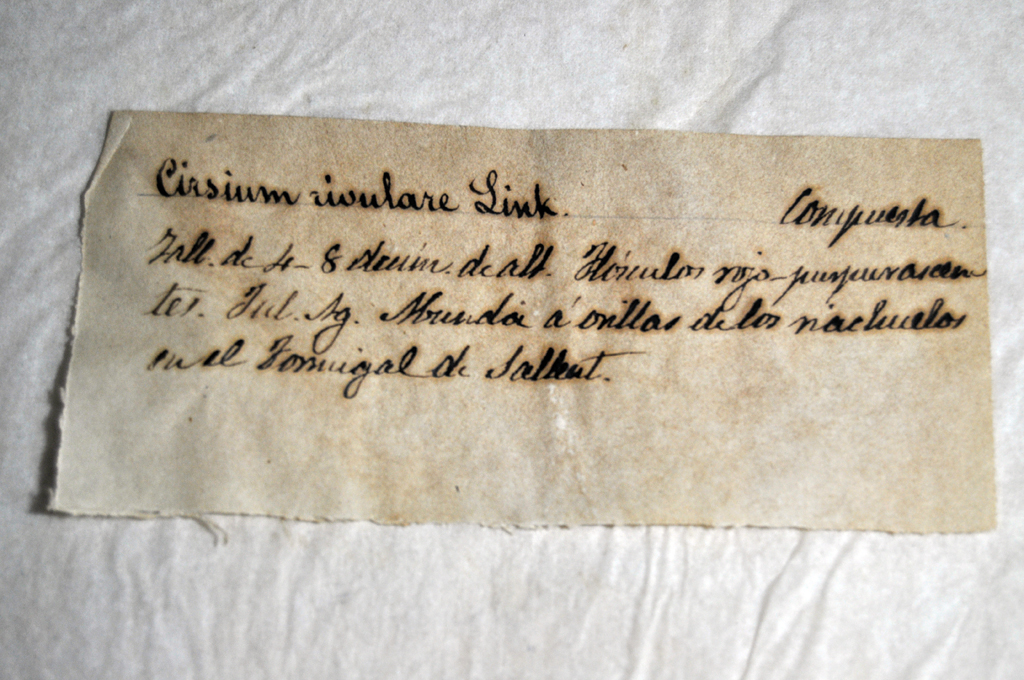 Cirsium rivulare Link. Compuesta.
Tall. de 4-8 decím. de alt. Flósculos rojo-purpurascen
tes. Jul. Ag. Abunda á orillas de los riachuelos
en el Formigal de Sallent.